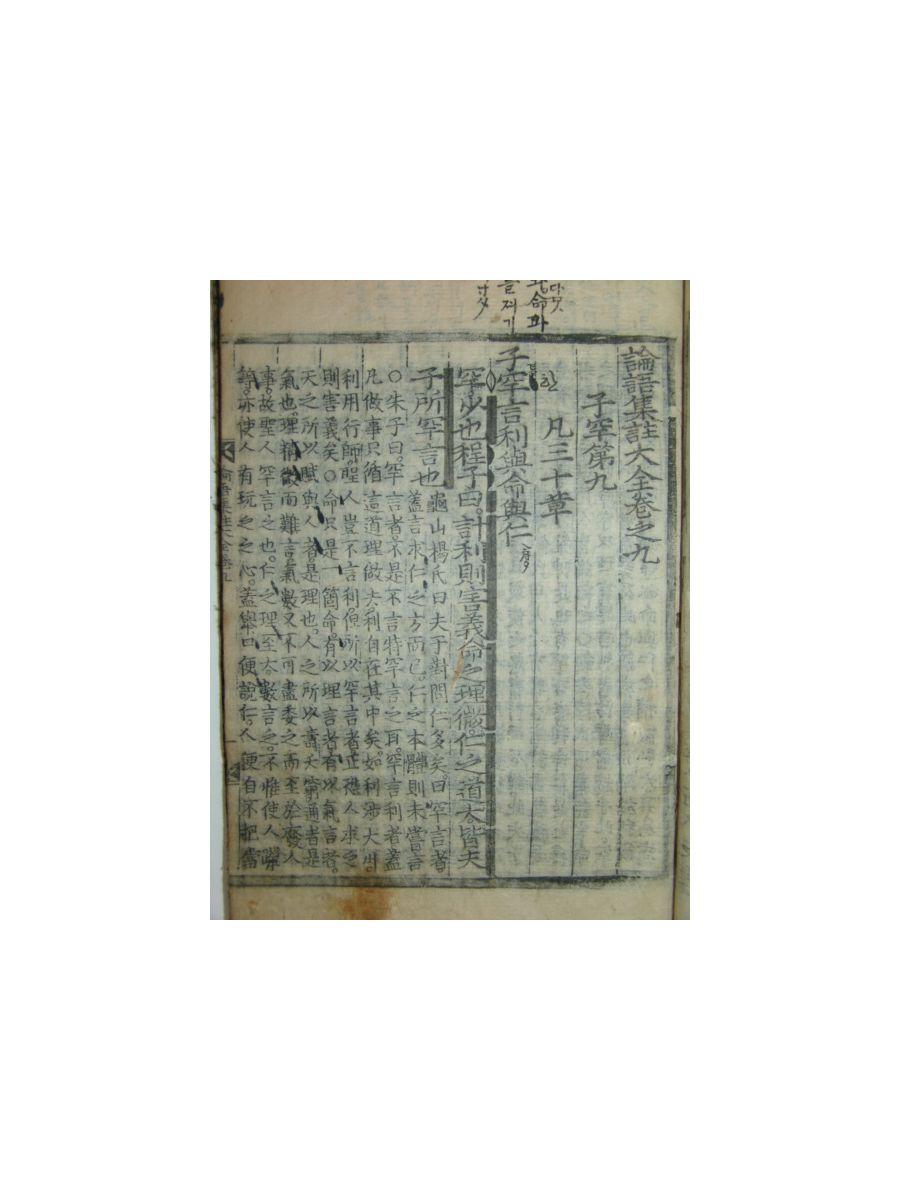 論語集註大全卷之九
子罕第九
凡三十章
子罕言利與命與仁
罕少也程子曰計利則害義命之理微仁之道大皆夫
子所罕言也
龜山楊氏曰夫子對問仁多矣曰罕言者
蓋言求仁之方而已仁之本體則未嘗言
○朱子曰罕言者不是不言特罕言之耳罕言利者蓋
凡做事只循這道理做去利自在其中矣如利涉大川
利用行師聖人豈不言利但所以罕言者正恐人求之
則害義矣○命只是一箇命有以理言者有以氣言者
天之所以賦與人者是理也人之所以壽夭窮通者是
氣也理精微而難言氣數又不可盡委之而至於廢人
事故聖人罕言之也仁之理至大數言之不惟使人躐
等亦使人有玩之之心蓋擧口便說仁人便自不把當